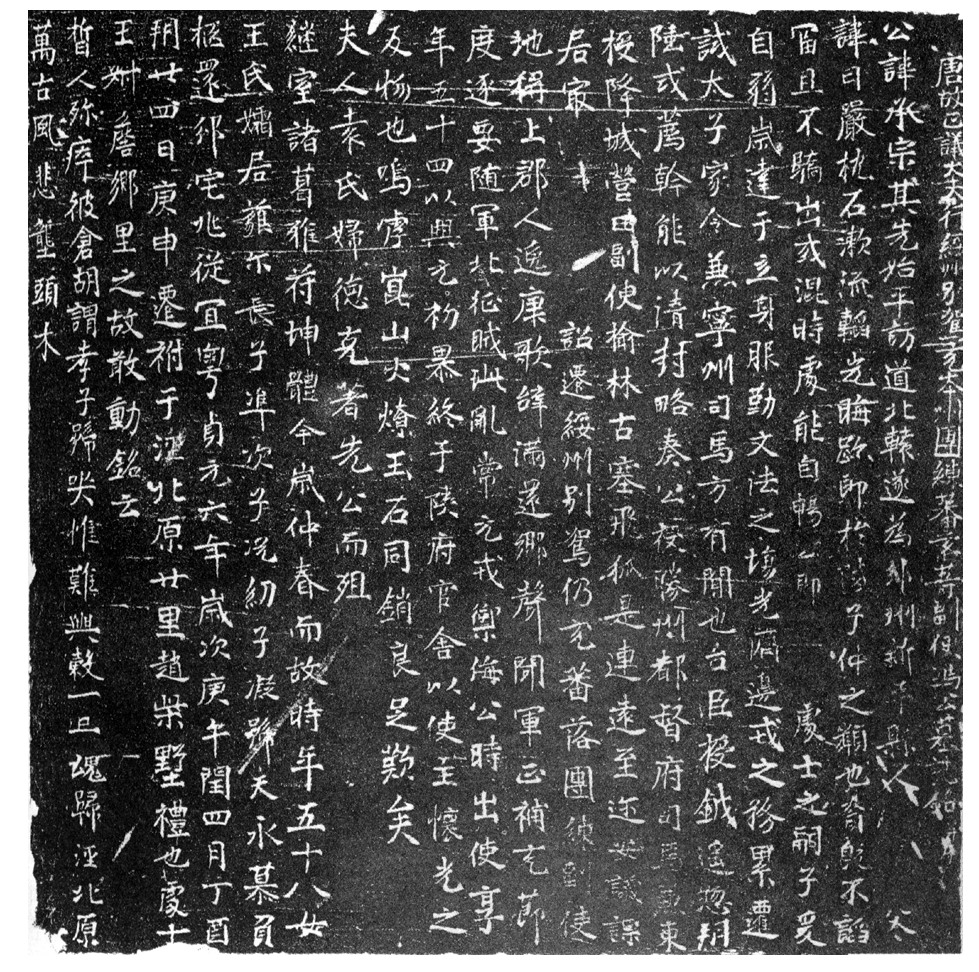 唐故正議大夫行綏州別駕充本州團練蕃落等副使馮公墓誌銘并
公諱承宗其先始平訪道北轅遂為邠州新平縣人 大
諱日嚴枕石漱流韜光晦跡即於陵子仲之類也裔貧不諂
富且不驕出或混時處能自暢公即 處士之嗣子爰
自弱歲達于立身服勤文法之場光濟邊戎之務累遷
試太子家令兼寧州司馬方有聞也台臣授鉞遙惣朔
陲或薦幹能以清封略奏公授勝州都督府司馬兼東
授降城營田副使榆林古塞飛狐是連遠至迩安議課
居最 詔遷綏州別駕仍充蕃落團練副使
地稱上郡人逸康歌辞滿還鄉聲聞軍正補充節
度逐要随軍北狄賊泚亂常元戎禦侮公時出使享
年五十四以興元初暴終于陝府官舍以使主懷光之
反惻也嗚虖崑山火燎玉石同銷良足歎矣
夫人袁氏婦德克著先公而殂
継室諸葛雅符坤體今歲仲春而故時年五十八女
王氏孀居薨尔長子準次子况幼子凝號天永慕負
柩還邠宅兆從宜粤貞元六年歲次庚午閏四月丁酉
朔廿四日庚申遷祔于涇北原廿里趙柴墅禮也處士
王
鄉里之故敢動銘云
哲人殄瘁彼倉胡謂孝子號哭惟難與穀一上魂歸涇北原
萬古風悲壟頭木